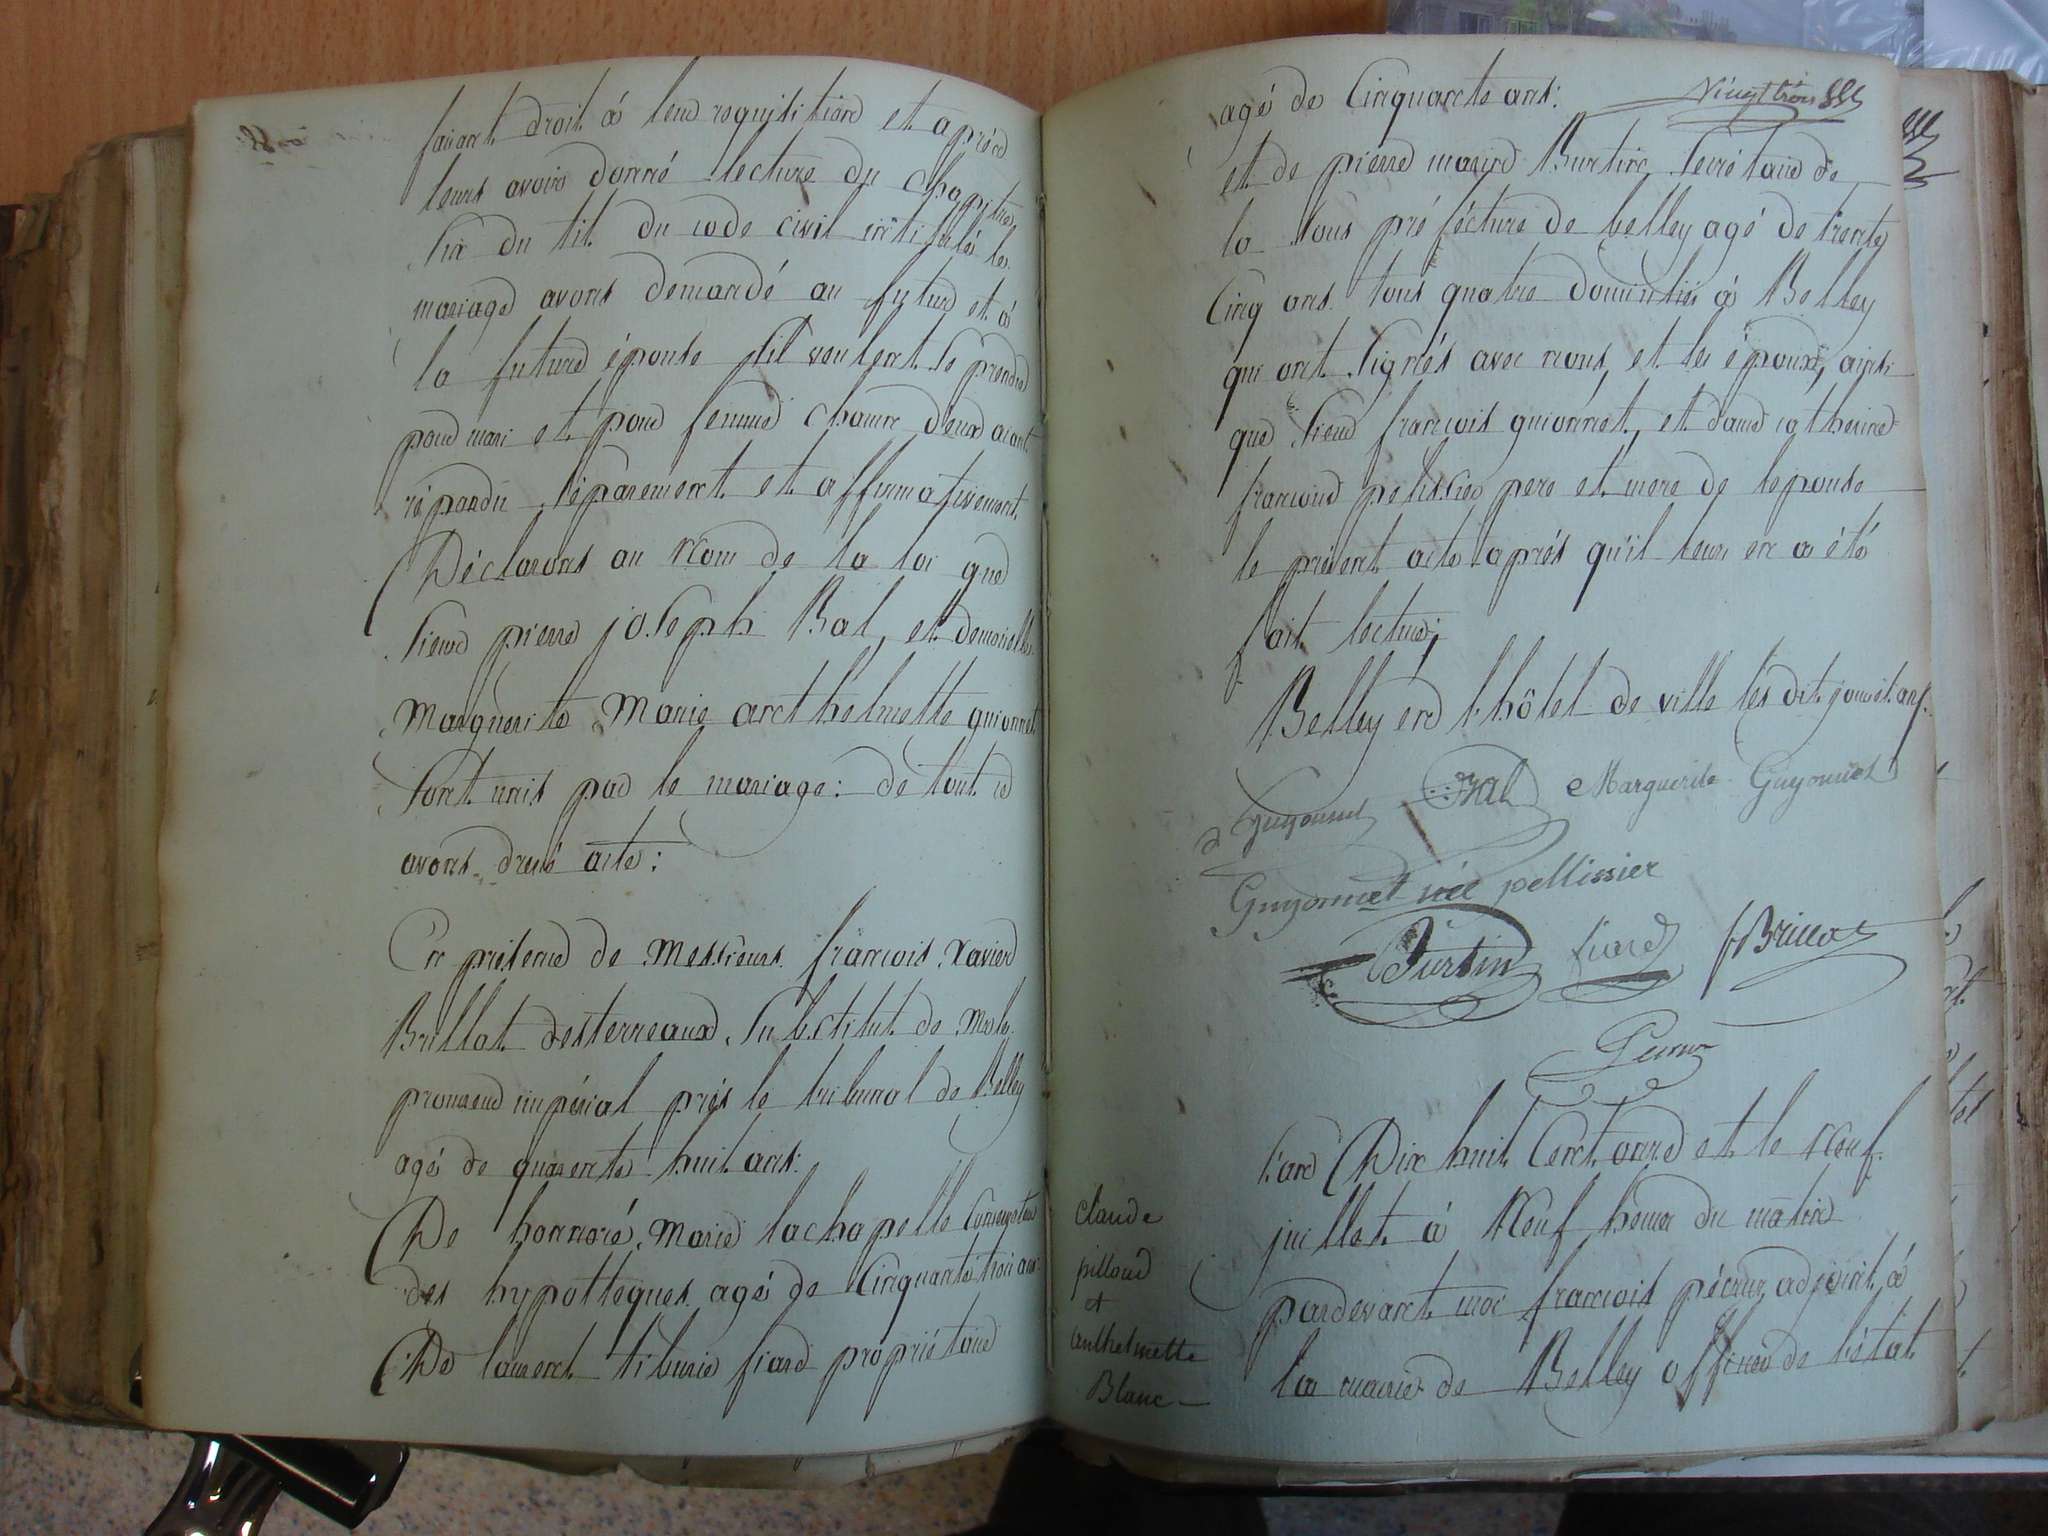 faisant droit á leur requisition et aprés
leurs avoir donné lecture du chapitre
Six du tit. du code civil intitulés le
mariage avons demandé au futur et á
la future épouse s'il veulent se prendre
pour mari et pour femme chacun d'eux aiant
répondu séparement et affirmativement
Déclarons au Nom de la loi que
Sieur pierre joseph Bal, et demoiselle
Marguerite Marie anthelmette guionnet
Sont unis par le mariage: de tout ce
avons dressé acte:
En présence de Messieurs françois Xavier
Brillat desterreaux Substitut de Mr le
procureur impérial prés le tribunal de Belley
agé de quarente huit ans:
De honnoré Marie lachapelle Conservateur
des hypotteques agé de Cinquante trois ans:
De laurent tiburce fiard propriétaire
Vingt trois
agé de Cinquante ans:
et de pierre marie Burtin Secrétaire de
la sous préfécture de belley agé de trente
Cinq ans tous quatre domiciliés á Belley
qui ont Signés avec nous, et les époux, ainsi
que Sieur françois guionnet, et dame catherine
françoise pelissier pere et mere de lepouse
le présent acte aprés qu'il leur en a été
fait lecture;
Belley en l'hôtel de ville les dit jour et an.
Guyonnet Bal Marguerite Guyonnet
Guyonnet née pellissier
Burtin fiard Brillat
Pecour
L'an Dix huit Cent onze et le Neuf
juillet á Neuf heures du matin
pardevant moi françois pécour, adjoint á
la mairie de Belley officier de l'état
claude
pilloud
et
anthelmette
Blanc